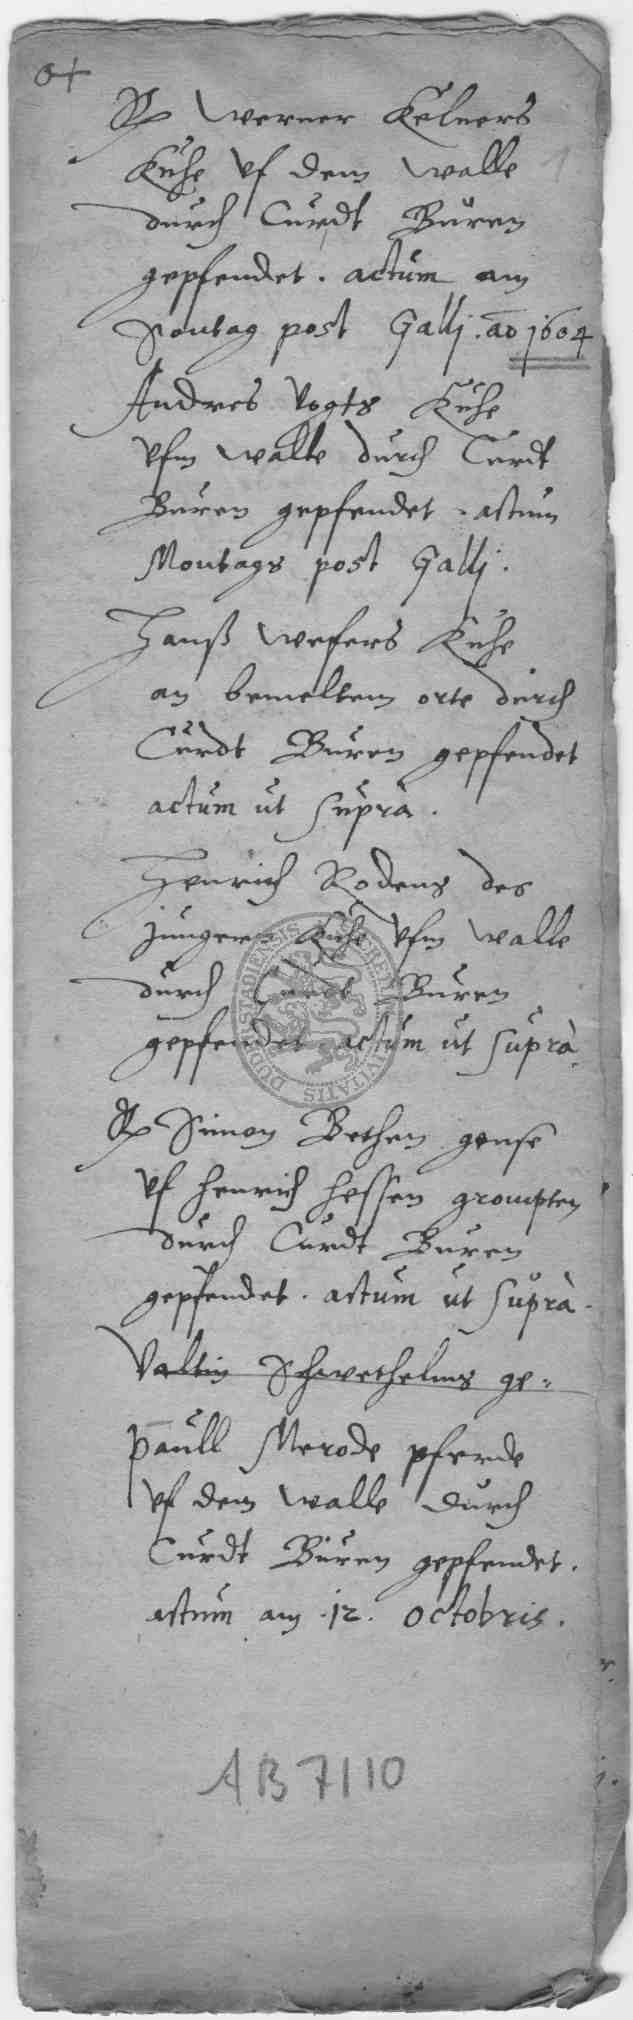 Werner Kelners
Kuhe vf dem walle
durch Curdt Buren
gepfendet. actum am
Sontag post Galli. ao 1604
Andres Vogts Kuhe
vfm walle durch Curdt
Buren gepfendet. actum
Montags post Galli.
Hanß wefers Kuhe
an bemeltem orte durch
Curdt Buren gepfendet
actum ut suprà.
Henrich Rodens des
jungern Kuhe vfm walle
durch Curdt Buren
gepfendet actum ut suprà
Simon Bethen gense
vf henrich hessen grompten
durch Curdt Buren
gepfendet. actum ut suprà.
Valtin Schwethelms ge=
Paull Merode pferde
vf dem walle durch
Curdt Buren gepfendet.
actum am 12. octobris.
AB 7110